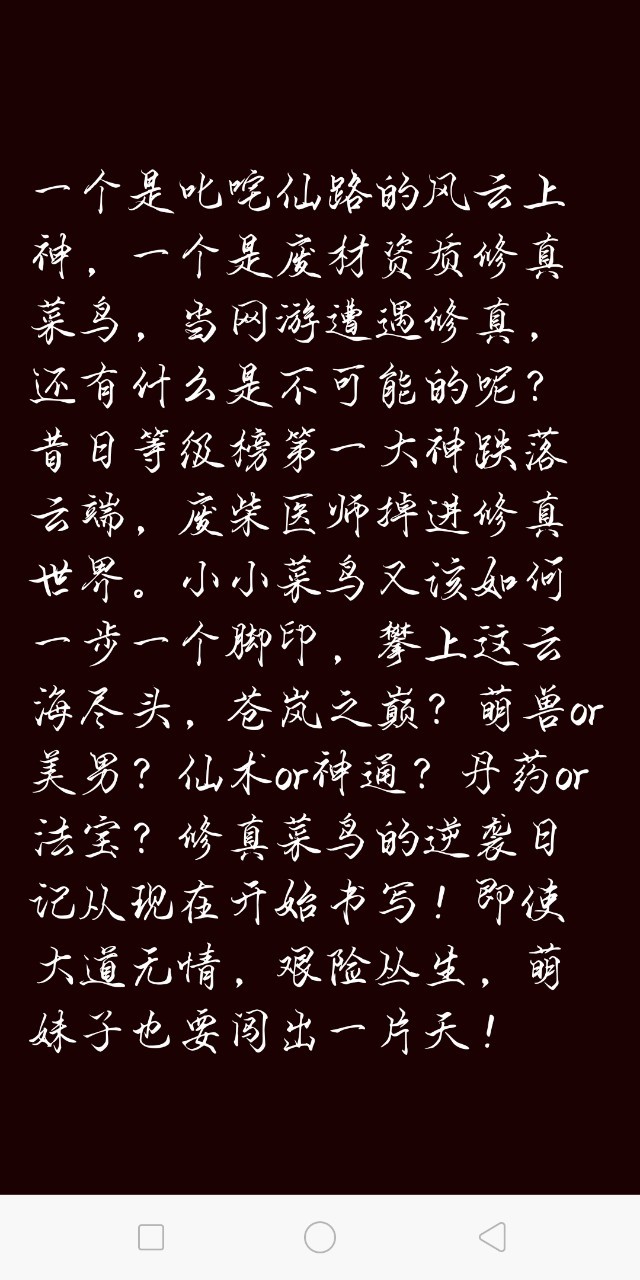 一个是叱咤仙路的风云上
神，一个是废材资质修真
菜鸟，当网游遭遇修真，
还有什么是不可能的呢？
昔日等级榜第一大神跌落
云端，废柴医师掉进修真
世界。小小菜鸟又该如何
一步一个脚印，攀上这云
海尽头，苍岚之巅？萌兽or
美男？仙术or神通？丹药or
法宝？修真菜鸟的逆袭日
记从现在开始书写！即使
大道无情，艰险丛生，萌
妹子也要闯出一片天！